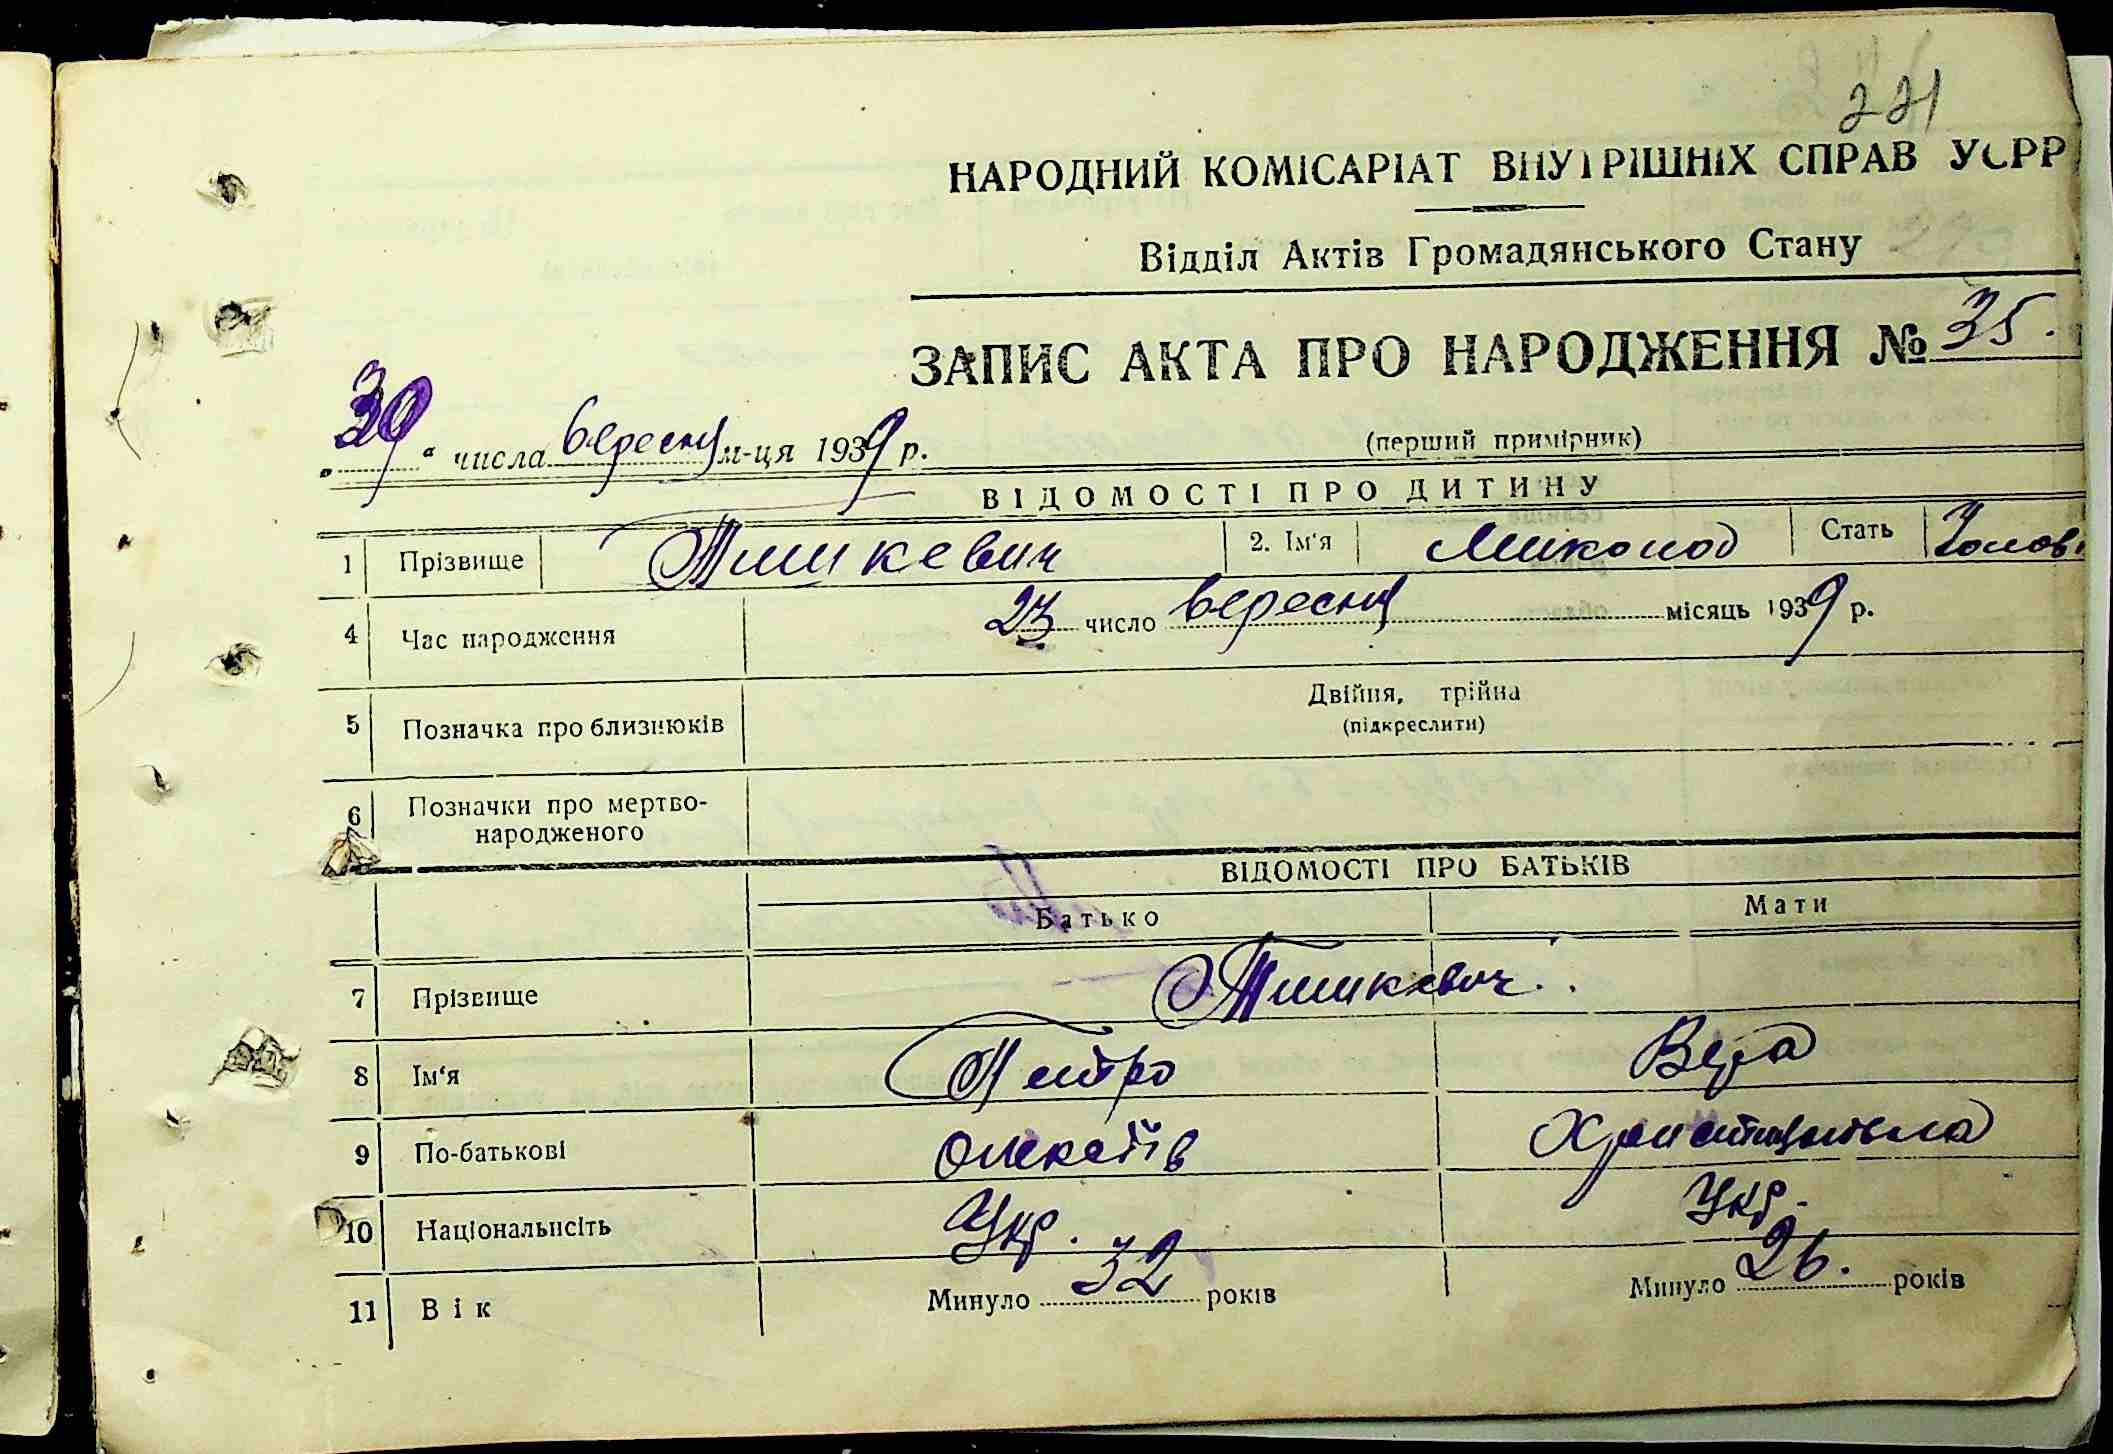 221
НАРОДНИЙ КОМІСАРІАТ ВНУТРІШНІХ СПРАВ УСРР
Відділ Актів Громадянського Стану
ЗАПИС АКТА ПРО НАРОДЖЕННЯ № 35.
„30“ числа вересня м-ця 1939 р.
(перший примірник)
ВІДОМОСТІ ПРО ДИТИНУ
1 Прізвище Тишкевич 2. Ім'я Стать Чолов.
4 Час народження 23 число вересня місяць 1939 р.
5 Позначка про близнюків Двійня, трійна
(підкреслити)
6 Позначки про мертво-
народженого
ВІДОМОСТІ ПРО БАТЬКІВ
Батько Мати
7 Прізвище Тишкевич
8 Ім'я Петро Вера
9 По-батькові
10 Національність Укр. Укр.
11 Вік Минуло 32 років Минуло 26. років